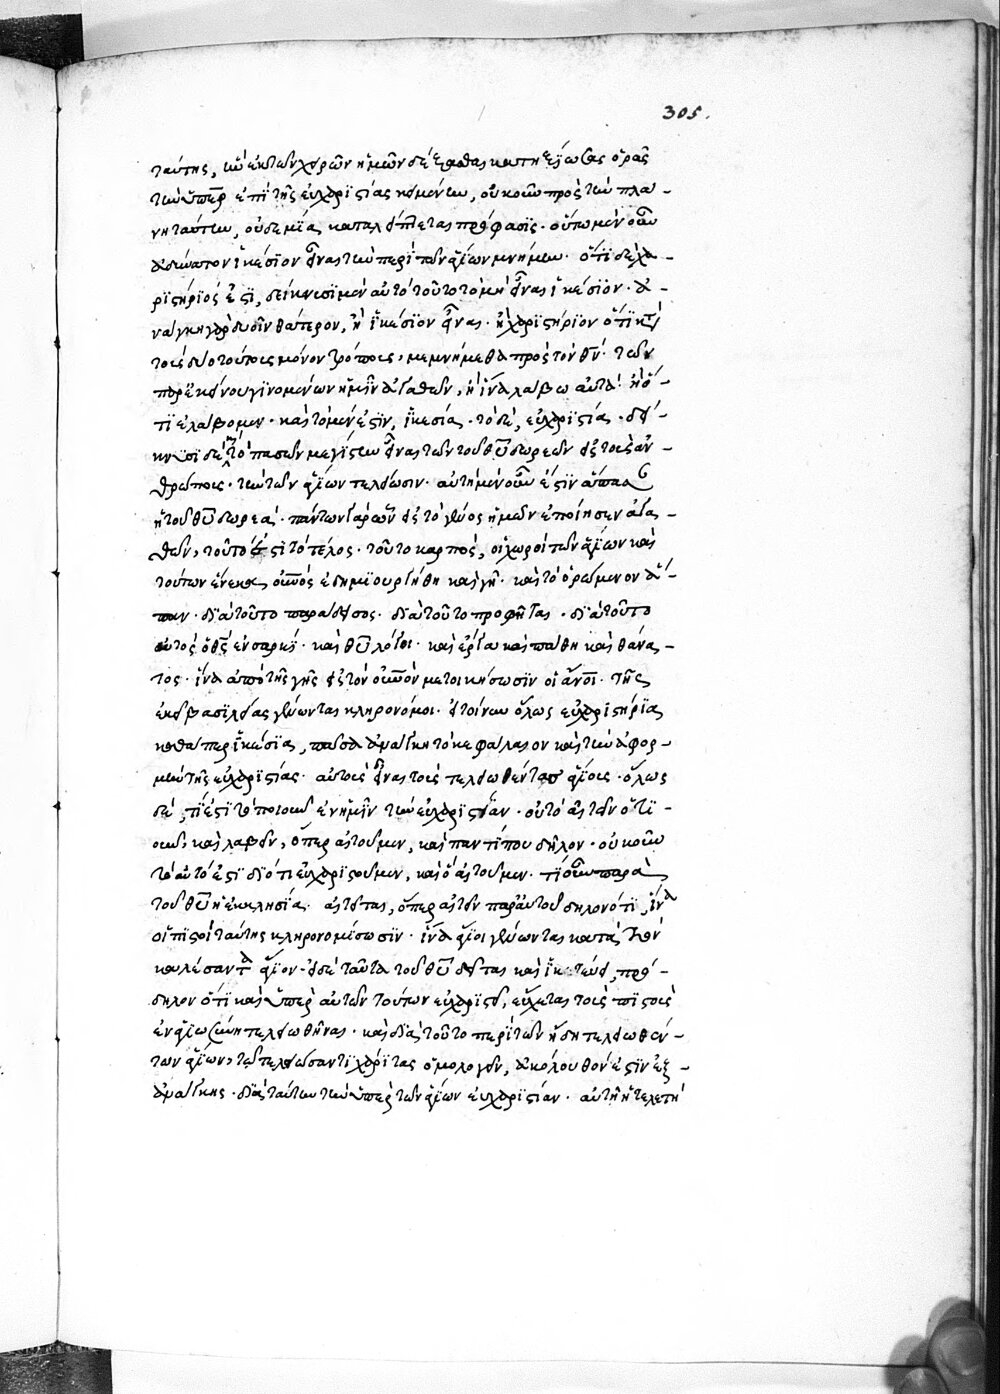 305.
ταύτης, ὡς ἐκ τῶν χειρῶν ἡμῶν δέξασθαι κατηξίωσας ὁρᾶς
τὴν ὑπὲρ ἐπὶ τῆς εὐχαριστίας κειμένην, οὐκοῦν πρὸς τὴν πλά-
νην ταύτην, οὐδεμία καταλείπεται πρόφασις. οὕτω μὲν οὖν
ἀδύνατον ἱκέσιον εἶναι τὴν περὶ τῶν ἁγίων μνήμην. ὅτι δὲ χα-
ριστήριός ἐστι, δείκνυσι μὲν αὐτὸ τοῦτο τὸ μὴ εἶναι ἱκέσιον. ἀ-
νάγκη γὰρ δυοῖν θάτερον, ἢ ἱκέσιον εἶναι. ἢ χαριστήριον ὅτι κατὰ
τοὺς δύο τούτους μόνον τρόπους, μεμνήμεθα πρὸς τὸν θν. τῶν
παρ' ἐκείνου γινομένων ἡμῖν ἀγαθῶν, ἢ ἵνα λάβω αὐτὰ. ἢ ὅ-
τι ἐλάβομεν. καὶ τὸ μέν ἐστιν, ἱκεσία. τὸ δὲ, εὐχαριστία. δεί-
κνυσι δὲ τὸ πασῶν μεγίστην εἶναι τῶν τοῦ θυ δωρεῶν εἰς τοὺς ἀν-
θρώπους. τὴν τῶν ἁγίων τελείωσιν. αὕτη μὲν οὖν ἐστὶν ἅπασα
ἡ τοῦ θυ δωρεά. πάντων γὰρ ὧν εἰς τὸ γένος ἡμῶν ἐποίησεν ἀγα-
θῶν, τοῦτό ἐστι τὸ τέλος. τοῦτο καρπὸς, οἱ χοροὶ τῶν ἁγίων καὶ
τούτων ἕνεκα οὐνός ἐδημιουργήθη καὶ γῆ. καὶ τὸ ὁρώμενον ἅ-
παν. διὰ τοῦτο παράδεισος. διὰ τοῦτο προφῆται. διὰ τοῦτο
αὐτὸς ὁ θς ἐν σαρκὶ. καὶ θυ λόγοι. καὶ ἔργα καὶ πάθη καὶ θάνα-
τος. ἵνα ἀπὸ τῆς γῆς εἰς τὸν οὐνὸν μετοικήσωσιν οἱ ἄνοι. τῆς
ἐκεῖ βασιλείας γένωνται κληρονόμοι. εἰ τοίνυν ὅλως εὐχαριστήρια
καθάπερ ἱκέσια, πᾶσα ἀνάγκη τὸ κεφάλαιον καὶ τὴν ἀφορ-
μὴν τῆς εὐχαριστίας. αὐτοὺς εἶναι τοὺς τελειωθέντας ἁγίους. ὅλως
δὲ, τί ἐστι τὸ ποιοῦν ἐν ἡμῖν τὴν εὐχαριστίαν. οὐ τὸ αἰτεῖν ὅτι-
οῦν, καὶ λαβεῖν, ὅπερ αἰτοῦμεν, καὶ παντί που δῆλον. οὐκοῦν
τὸ αὐτό ἐστι διότι εὐχαριστοῦμεν, καὶ ὅ αἰτοῦμεν. τί οὖν παρὰ
τοῦ θυ ἡ ἐκκλησία αἰτεῖται, ὅπερ αἰτεῖν παρ' αὐτοῦ δηλονότι, ἵνα
οἱ πιστοὶ ταύτης κληρονομήσωσιν. ἵνα ἅγιοι γένωνται κατὰ τὸν
καλέσαντα ἅγιον. εἰ δὲ ταῦτα τοῦ θυ δεῖται καὶ ἱκετεύει, πρό-
δηλον ὅτι καὶ ὑπὲρ αὐτῶν τούτων εὐχαριστεῖ, εὔχεται τοὺς πιστοὺς
ἐν ἁγιωσύνῃ τελειωθῆναι. καὶ διὰ τοῦτο περὶ τῶν ἤδη τελειωθέν-
των ἁγίων, τῷ τελειώσαντι χάριτας ὁμολογεῖν, ἀκόλουθόν ἐστιν ἐξ
ἀνάγκης. διὰ ταύτην τὴν ὑπὲρ τῶν ἁγίων εὐχαριστίαν. αὐτὴ ἡ τελετὴ